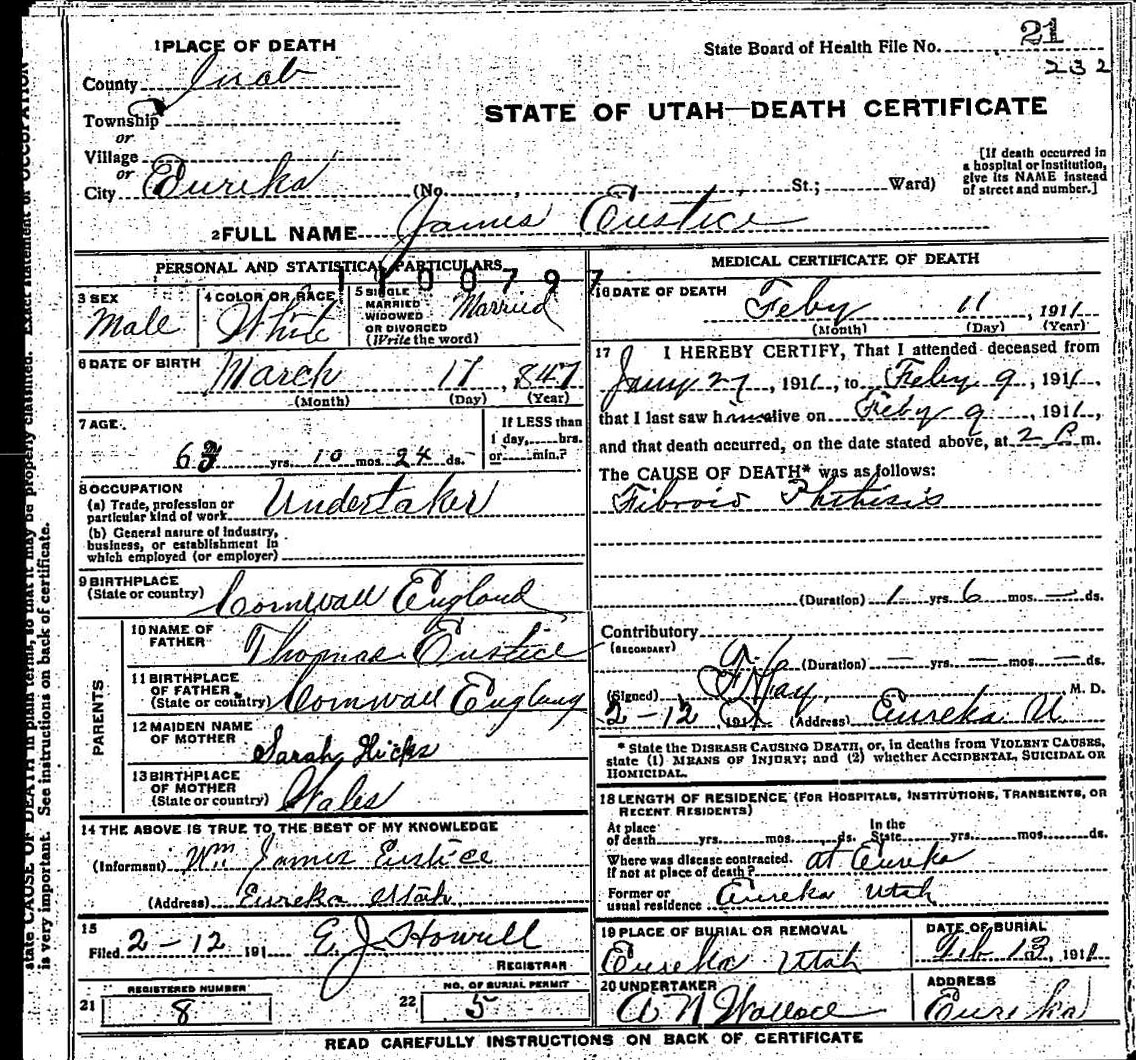 1 PLACE OF DEATH
State Board of Health File No. 21
232
County Juab
STATE OF UTAH—DEATH CERTIFICATE
Township
or
Village
or
City Eureka (No. , St.; Ward)
[If death occurred in
a hospital or institution,
give its NAME instead
of street and number.]
2 FULL NAME James Eustice
PERSONAL AND STATISTICAL PARTICULARS
1100797
3 SEX
Male
4 COLOR OR RACE
White
5 SINGLE
MARRIED
WIDOWED
OR DIVORCED
(Write the word)
Married
6 DATE OF BIRTH
March 17, 847
(Month) (Day) (Year)
7 AGE
63 yrs. 10 mos. 24 ds.
If LESS than
1 day, hrs.
or min.?
8 OCCUPATION
(a) Trade, profession or
particular kind of work Undertaker
(b) General nature of industry,
business, or establishment in
which employed (or employer)
9 BIRTHPLACE
(State or country) Cornwall England
PARENTS
10 NAME OF
FATHER Thomas Eustice
11 BIRTHPLACE
OF FATHER
(State or country) Cornwall England
12 MAIDEN NAME
OF MOTHER Sarah Hicks
13 BIRTHPLACE
OF MOTHER
(State or country) Wales
14 THE ABOVE IS TRUE TO THE BEST OF MY KNOWLEDGE
(Informant) Wm James Eustice
(Address) Eureka Utah
15
Filed 2-12 191 E J Howell
REGISTRAR
REGISTERED NUMBER
21 8
NO. OF BURIAL PERMIT
22 5
MEDICAL CERTIFICATE OF DEATH
16 DATE OF DEATH
Feby 11, 1911
(Month) (Day) (Year)
17 I HEREBY CERTIFY, That I attended deceased from
Jany 27, 1911, to Feby 9, 1911,
that I last saw him alive on Feby 9, 1911,
and that death occurred, on the date stated above, at 2 P m.
The CAUSE OF DEATH* was as follows:
Fibroid Phthisis
(Duration) 1 yrs 6 mos. — ds.
Contributory
(SECONDARY)
(Duration) — yrs. — mos. — ds.
(Signed) M. D.
2-12 191 (Address) Eureka U.
* State the DISEASE CAUSING DEATH, or, in deaths from VIOLENT CAUSES,
state (1) MEANS OF INJURY; and (2) whether ACCIDENTAL, SUICIDAL OR
HOMICIDAL.
18 LENGTH OF RESIDENCE (FOR HOSPITALS, INSTITUTIONS, TRANSIENTS, OR
RECENT RESIDENTS)
At place
of death yrs. mos. ds.
In the
State yrs. mos. ds.
Where was disease contracted.
if not at place of death? at Eureka
Former or
usual residence Eureka Utah
19 PLACE OF BURIAL OR REMOVAL
Eureka Utah
DATE OF BURIAL
Feb 13, 1911
20 UNDERTAKER
A N Wallace
ADDRESS
Eureka
READ CAREFULLY INSTRUCTIONS ON BACK OF CERTIFICATE
state CAUSE OF DEATH in plain terms, so that it may be properly classified. Exact statement of OCCUPATION
is very important. See instructions on back of certificate.